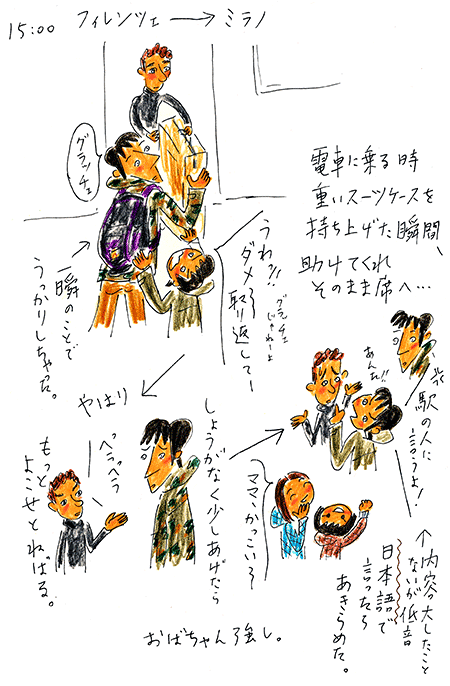 15:00 フィレンツェ → ミラノ
グラッチェ
電車に乗る時
重いスーツケースを
持ち上げた瞬間、
助けてくれ
そのまま席へ…
うわっ!!
ダメ〜
取り返してー
グラッチェ
じゃねーよ
一瞬のことで
うっかりしちゃった。
やはり
ペラペラ
もっと
よこせとねばる。
しょうがなく少しあげたら
あんた!!
駅の人に
言うよ!
ママ、かっこい〜
↑内容は大したこと
ないが低音
日本語で
言ったら
あきらめた。
おばちゃん強し。